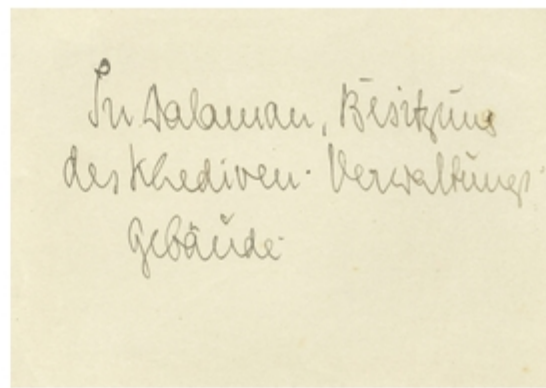 In Dalaman, Besitzung
des Khediven. Verwaltungs-
gebäude.